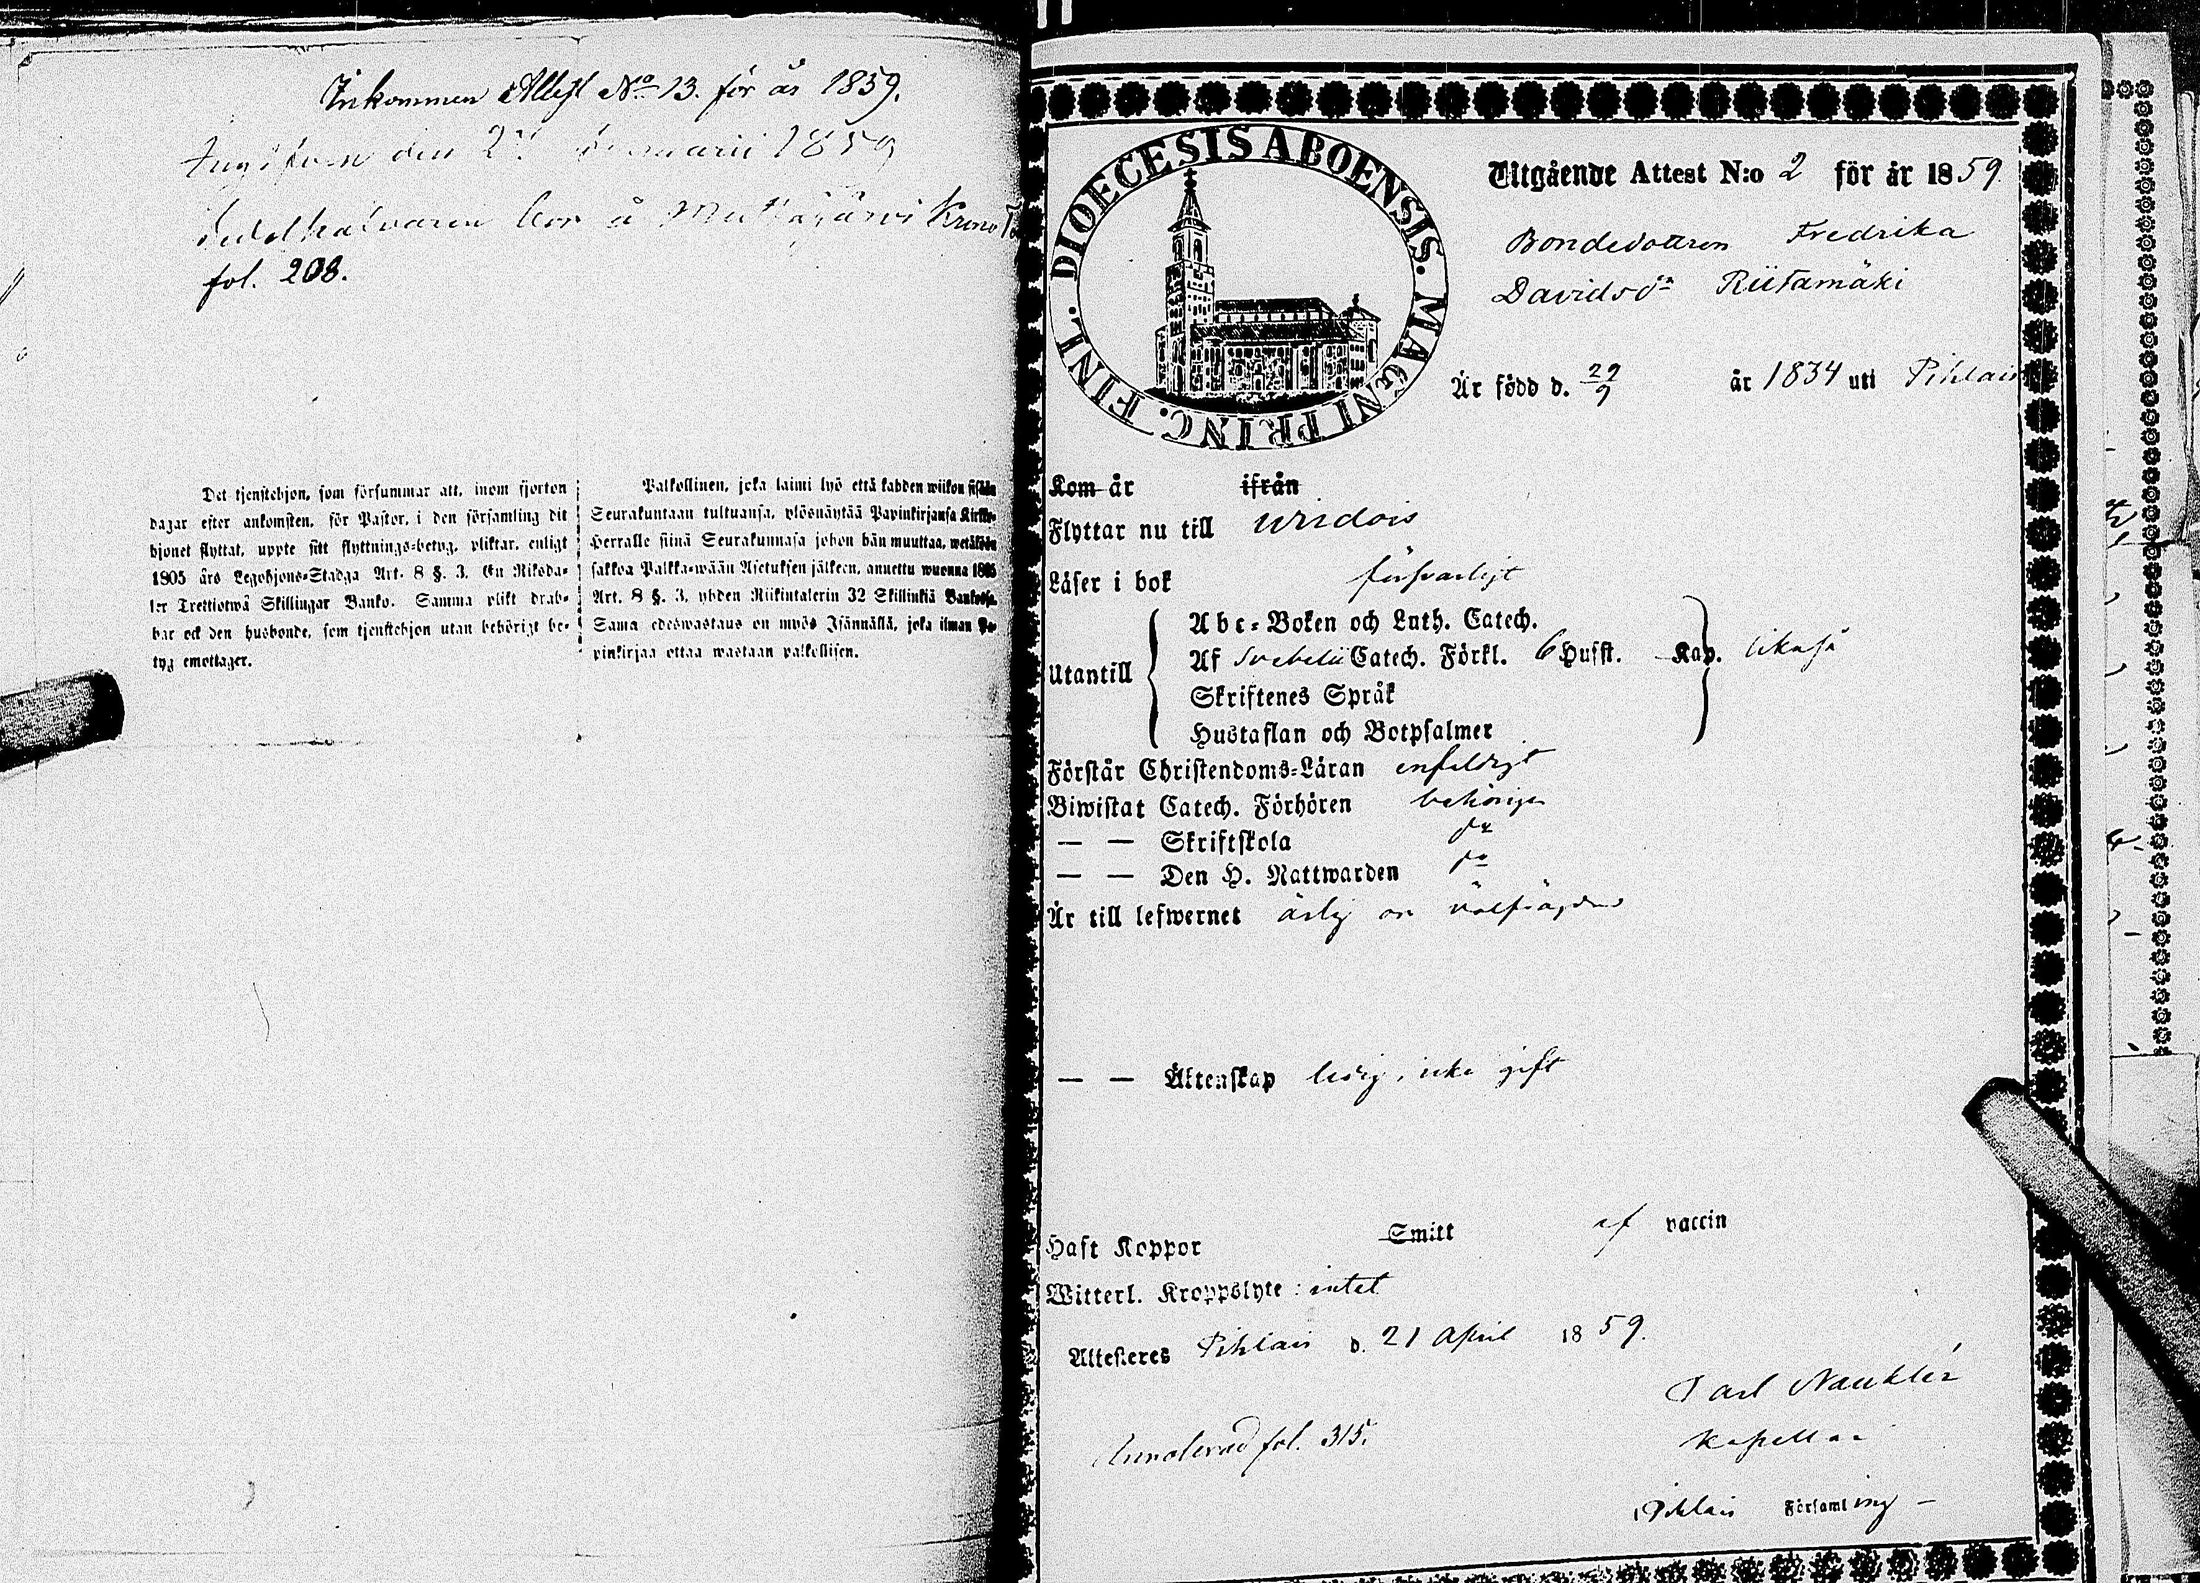 Inkommen Attest No 13. för år 1859.
den 1859
å Krono
fol. 208.
Det tjenstehjon, som försummar att, inom fjorton
dagar efter ankomsten, för Pastor, i den församling dit
hjonet flyttat, uppte sitt flyttnings-betyg, pliktar, enligt
1805 års Legohjons-Stadga Art. 8 §. 3. En Riksda-
ler Trettiotwå Skillingar Banko. Samma plikt drab-
bar ock den husbonde, som tjenstehjon utan behörigt be-
tyg emottager.
Palkollinen, joka laimi lyö että kahden wiikon sisään
Seurakuntaan tultuansa, ylösnäytää Papinkirjansa Kirkko-
Herralle siinä Seurakunnasa johon hän muuttaa, wetäköön
sakkoa Palkka-wään Asetuksen jälkeen, annettu wuonna 1805
Art. 8 §. 3, yhden Riikintalerin 32 Skillinkiä Bankosa.
Sama edeswastaus on myös Isännällä, joka ilman Pa-
pinkirjaa ottaa wastaan palkollisen.
DIOECESIS ABOENSIS. MAGNI PRINC. FINL.
Utgående Attest N:o 2 för år 1859.
Bondedottren Fredrika
Davidsdr Riitamäki
Är född d. 29/9 år 1834 uti Pihlais
Kom år ifrån
Flyttar nu till Wirdois
Läser i bok försvarligt
Utantill
Abc-Boken och Luth. Catech.
Af Svebelii Catech. Förkl. 6 Husst. Kap. likaså
Skriftenes Språk
Hustaflan och Botpsalmer
Förstår Christendoms-Läran enfaldigt
Biwistat Catech. Förhören behörigen
— — Skriftskola ja
— — Den H. Nattwarden ja
Är till lefwernet ärlig och välfrägdad
— — Äktenskap ledig, icke gift
Haft Koppor Smitt af vaccin
Witterl. Kroppslyte: intet
Attesteres Pihlais d. 21 April 1859.
Carl Nauklér
Kapellan
Annoterad fol. 315.
Pihlais Församling –